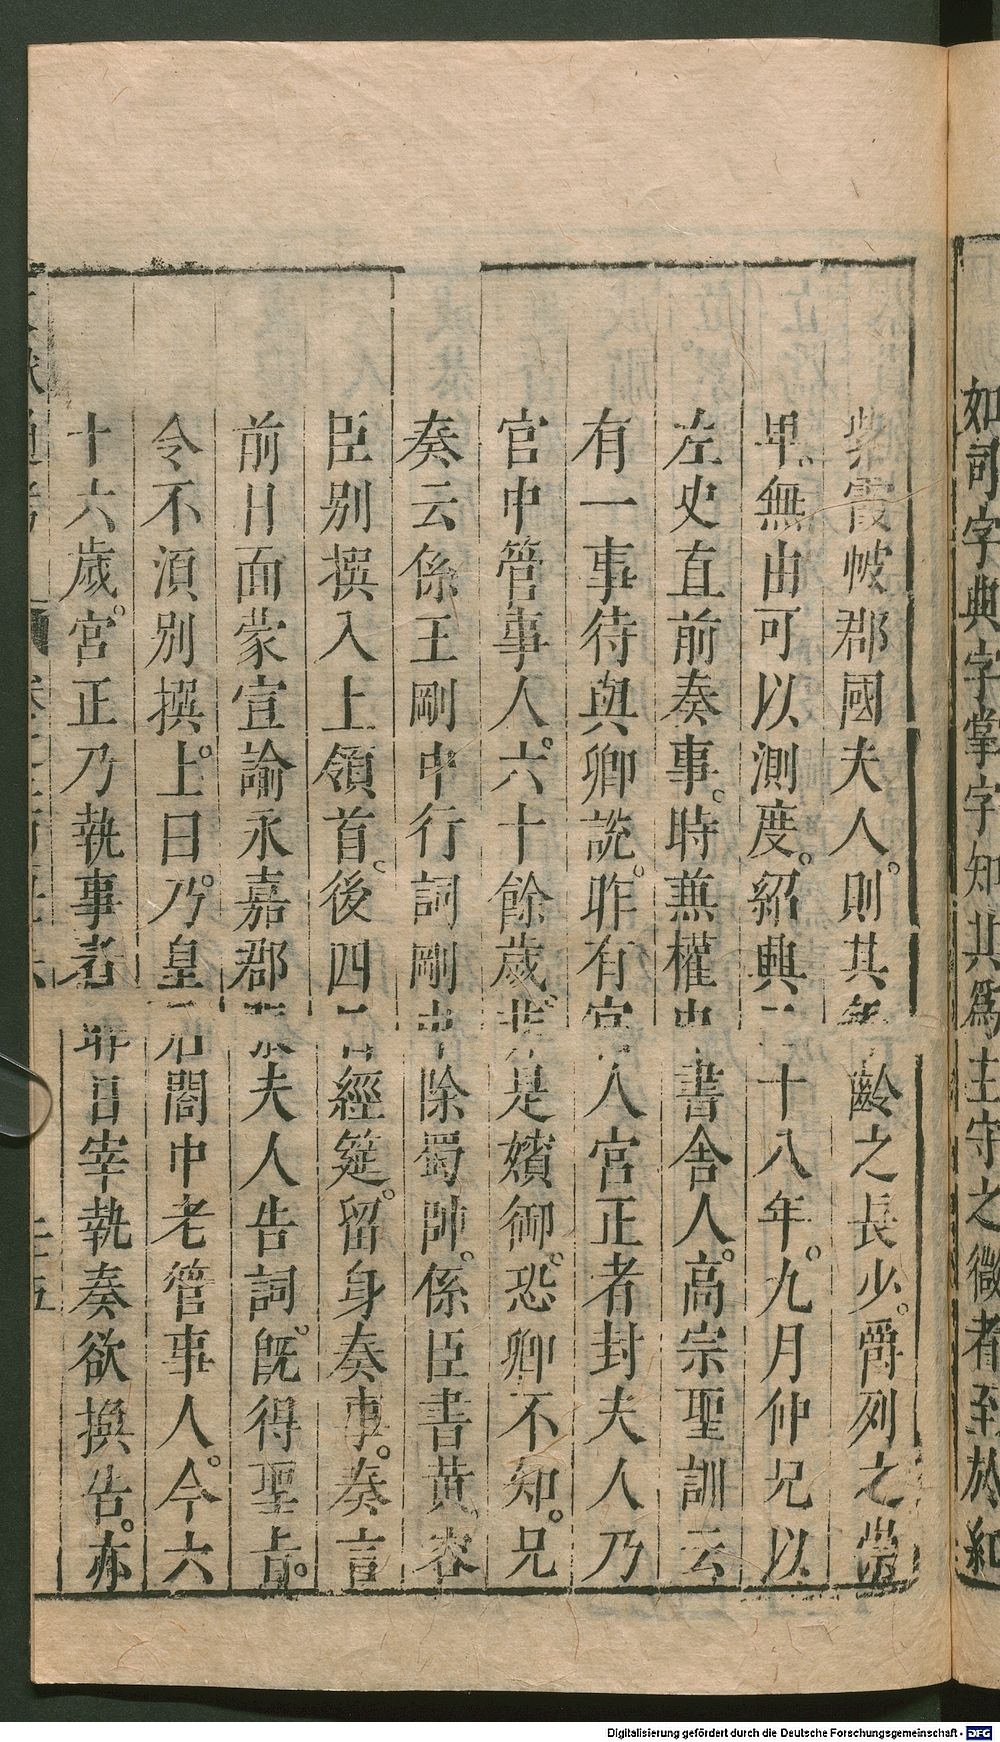 如司字典字掌字知其爲主守之微者至於紅
紫霞帔郡國夫人。則其年齡之長少。爵列之崇
卑。無由可以測度。紹興二十八年。九月仲兄以
左史直前奏事。時蕪權中書舍人。高宗聖訓云
有一事待與卿說。昨有宮人宮正者封夫人乃
宮中管事人。六十餘歲。非是嬪御。恐卿不知。兄
奏云係王剛中行詞剛中除蜀帥。係臣書黄。容
臣别撰入上領首。後四日經筵。留身奏事。奏言
前日面蒙宣諭永嘉郡張夫人告詞。既得聖旨。
令不須別撰。上曰。乃皇后閤中老管事人。今六
十六歲。宮正乃執事者昨日宰執奏欲換告。亦
文獻通考 卷二百五十六 二十五
Digitalisierung gefördert durch die Deutsche Forschungsgemeinschaft - DFG